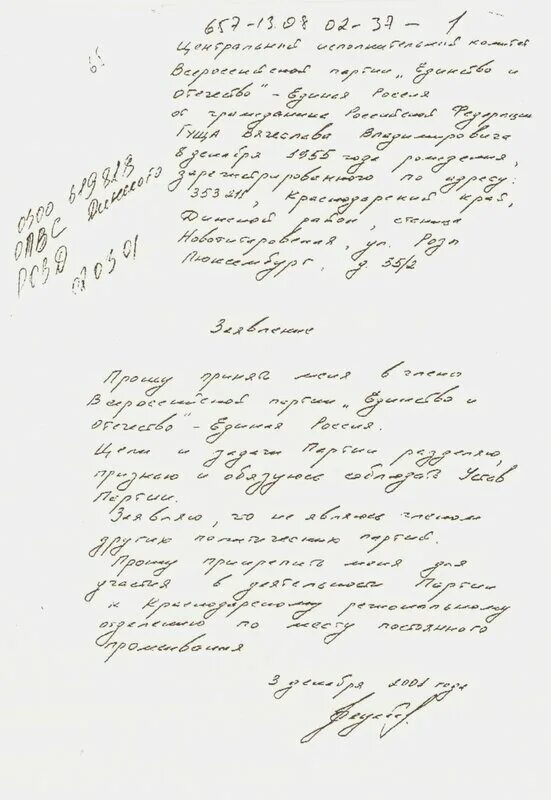 657-13.08 02-37-1
Центральный исполнительный комитет
Всероссийской партии „Единство и
Отечество" - Единая Россия
от гражданина Российской Федерации
ГУЩА Вячеслава Владимировича
8 декабря 1955 года рождения,
зарегистрированного по адресу:
353211, Краснодарский край,
Динской район, станица
Новотитаровская, ул. Розы
Люксембург, д. 55/2
0300 619813
ПВС Динского
РОВД
02 03 01
Заявление
Прошу принять меня в члены
Всероссийской партии „Единство и
Отечество" - Единая Россия.
Цели и задачи Партии разделяю,
признаю и обязуюсь соблюдать Устав
Партии.
Заявляю, что не являюсь членом
других политических партий.
Прошу прикрепить меня для
участия в деятельности Партии
к Краснодарскому региональному
отделению по месту постоянного
проживания
3 декабря 2001 года